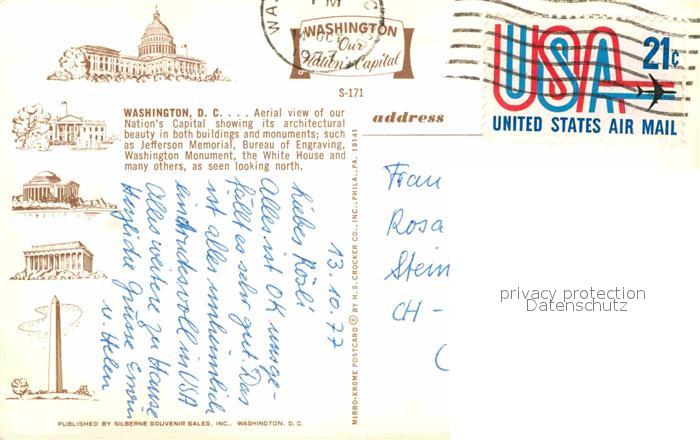 WASHINGTON
Our
Nation's Capital
S-171
USA
21c
UNITED STATES AIR MAIL
WASHINGTON, D. C. . . . . Aerial view of our
Nation's Capital showing its architectural
beauty in both buildings and monuments; such
as Jefferson Memorial, Bureau of Engraving,
Washington Monument, the White House and
many others, as seen looking north.
address
13.10.77
Liebes Rösli
Alles ist OK uns ge-
fällt es sehr gut. Das
ist alles unheimlich
eindrucksvoll in USA
Alles weitere zu Hause
Herzliche Grüsse Erwin
u. Helen
Frau
Rosa
Stein
CH -
MIRRO-KROME POSTCARD ® BY H. S. CROCKER CO., INC., PHILA., PA. 19141
PUBLISHED BY SILBERNE SOUVENIR SALES, INC., WASHINGTON, D. C.
privacy protection
Datenschutz